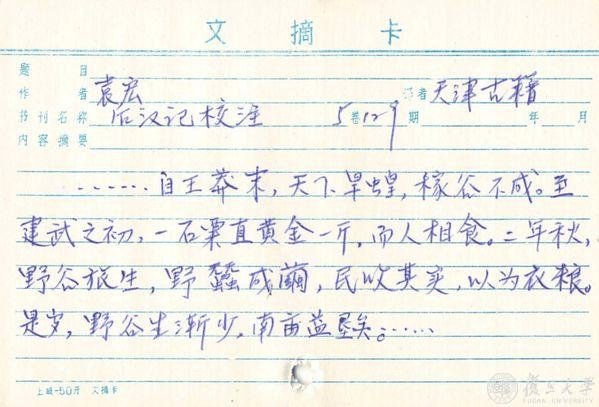 文摘卡
题 目
作 者 袁宏 译者 天津古籍
书刊名称 后汉记校注 5卷129期 年 月
内容摘要
……自王莽末,天下旱蝗,稼谷不成。至
建武之初,一石粟直黄金一斤,而人相食。二年秋,
野谷旅生,野蚕成茧,民收其实,以为衣粮。
是岁,野谷生渐少,南亩益垦矣。……
上级-50开 文摘卡
復旦大學
FUDAN UNIVERSITY